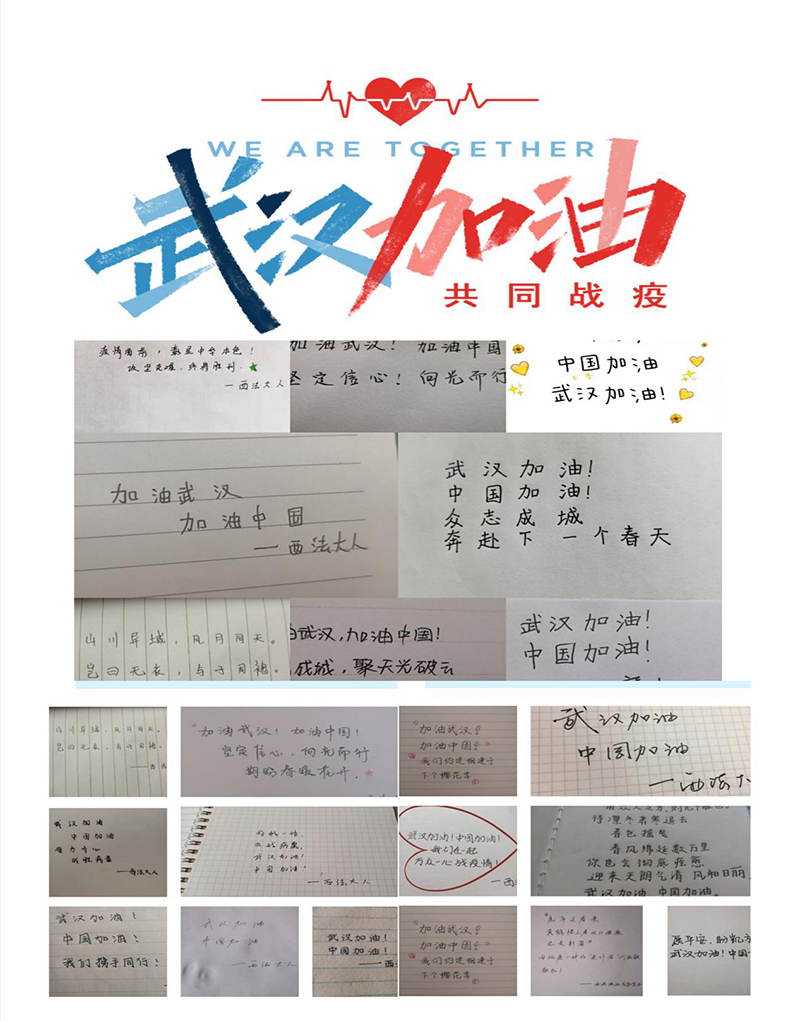 WE ARE TOGETHER
武汉加油
共同战疫
疫情面前，彰显中华本色！
——西法大人
加油武汉！加油中国
坚定信心！向光而行
中国加油
武汉加油！
加油武汉
加油中国
——西法大人
武汉加油！
中国加油！
众志成城
奔赴下一个春天
山川异域，风月同天。
岂曰无衣，与子同袍。
武汉，加油中国！
成城，聚天光破云
武汉加油！
中国加油！
山川异域，风月同天。
岂曰无衣，与子同袍。
加油武汉！加油中国！
坚定信心，向光而行
期盼春暖花开。
加油武汉！
加油中国！
我们约定相逢于
下个樱花季
武汉加油
中国加油
——西法大
武汉加油
中国加油
战胜病毒
——西法大人
武汉加油！
中国加油！
——西法大人
武汉加油！中国加油！
我们在一起
万众一心战疫情！
——西
待凛冬者寒退去
春色摇曳
春风绵延数万里
你也会沉疴痊愈
迎来天朗气清 风和日丽
武汉加油 中国加油。
武汉加油！
中国加油！
我们携手同行！
武汉加油
中国加油
——西法大人
武汉加油！
中国加油！
——西
加油武汉！
加油中国！
我们约定相逢于
下个樱花季
愿平安，盼凯
武汉加油！中国